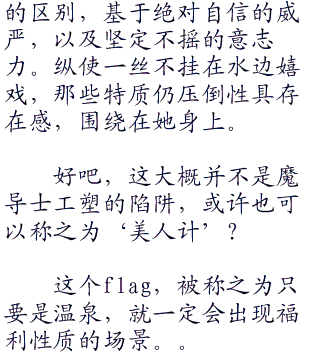 的区别，基于绝对自信的威
严，以及坚定不摇的意志
力。纵使一丝不挂在水边嬉
戏，那些特质仍压倒性具存
在感，围绕在她身上。
好吧，这大概并不是魔
导士工塑的陷阱，或许也可
以称之为‘美人计’？
这个flag，被称之为只
要是温泉，就一定会出现福
利性质的场景。。